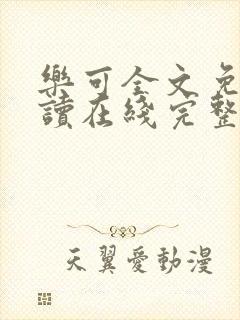 樂可全文免
讀在綫完整
天翼愛動漫